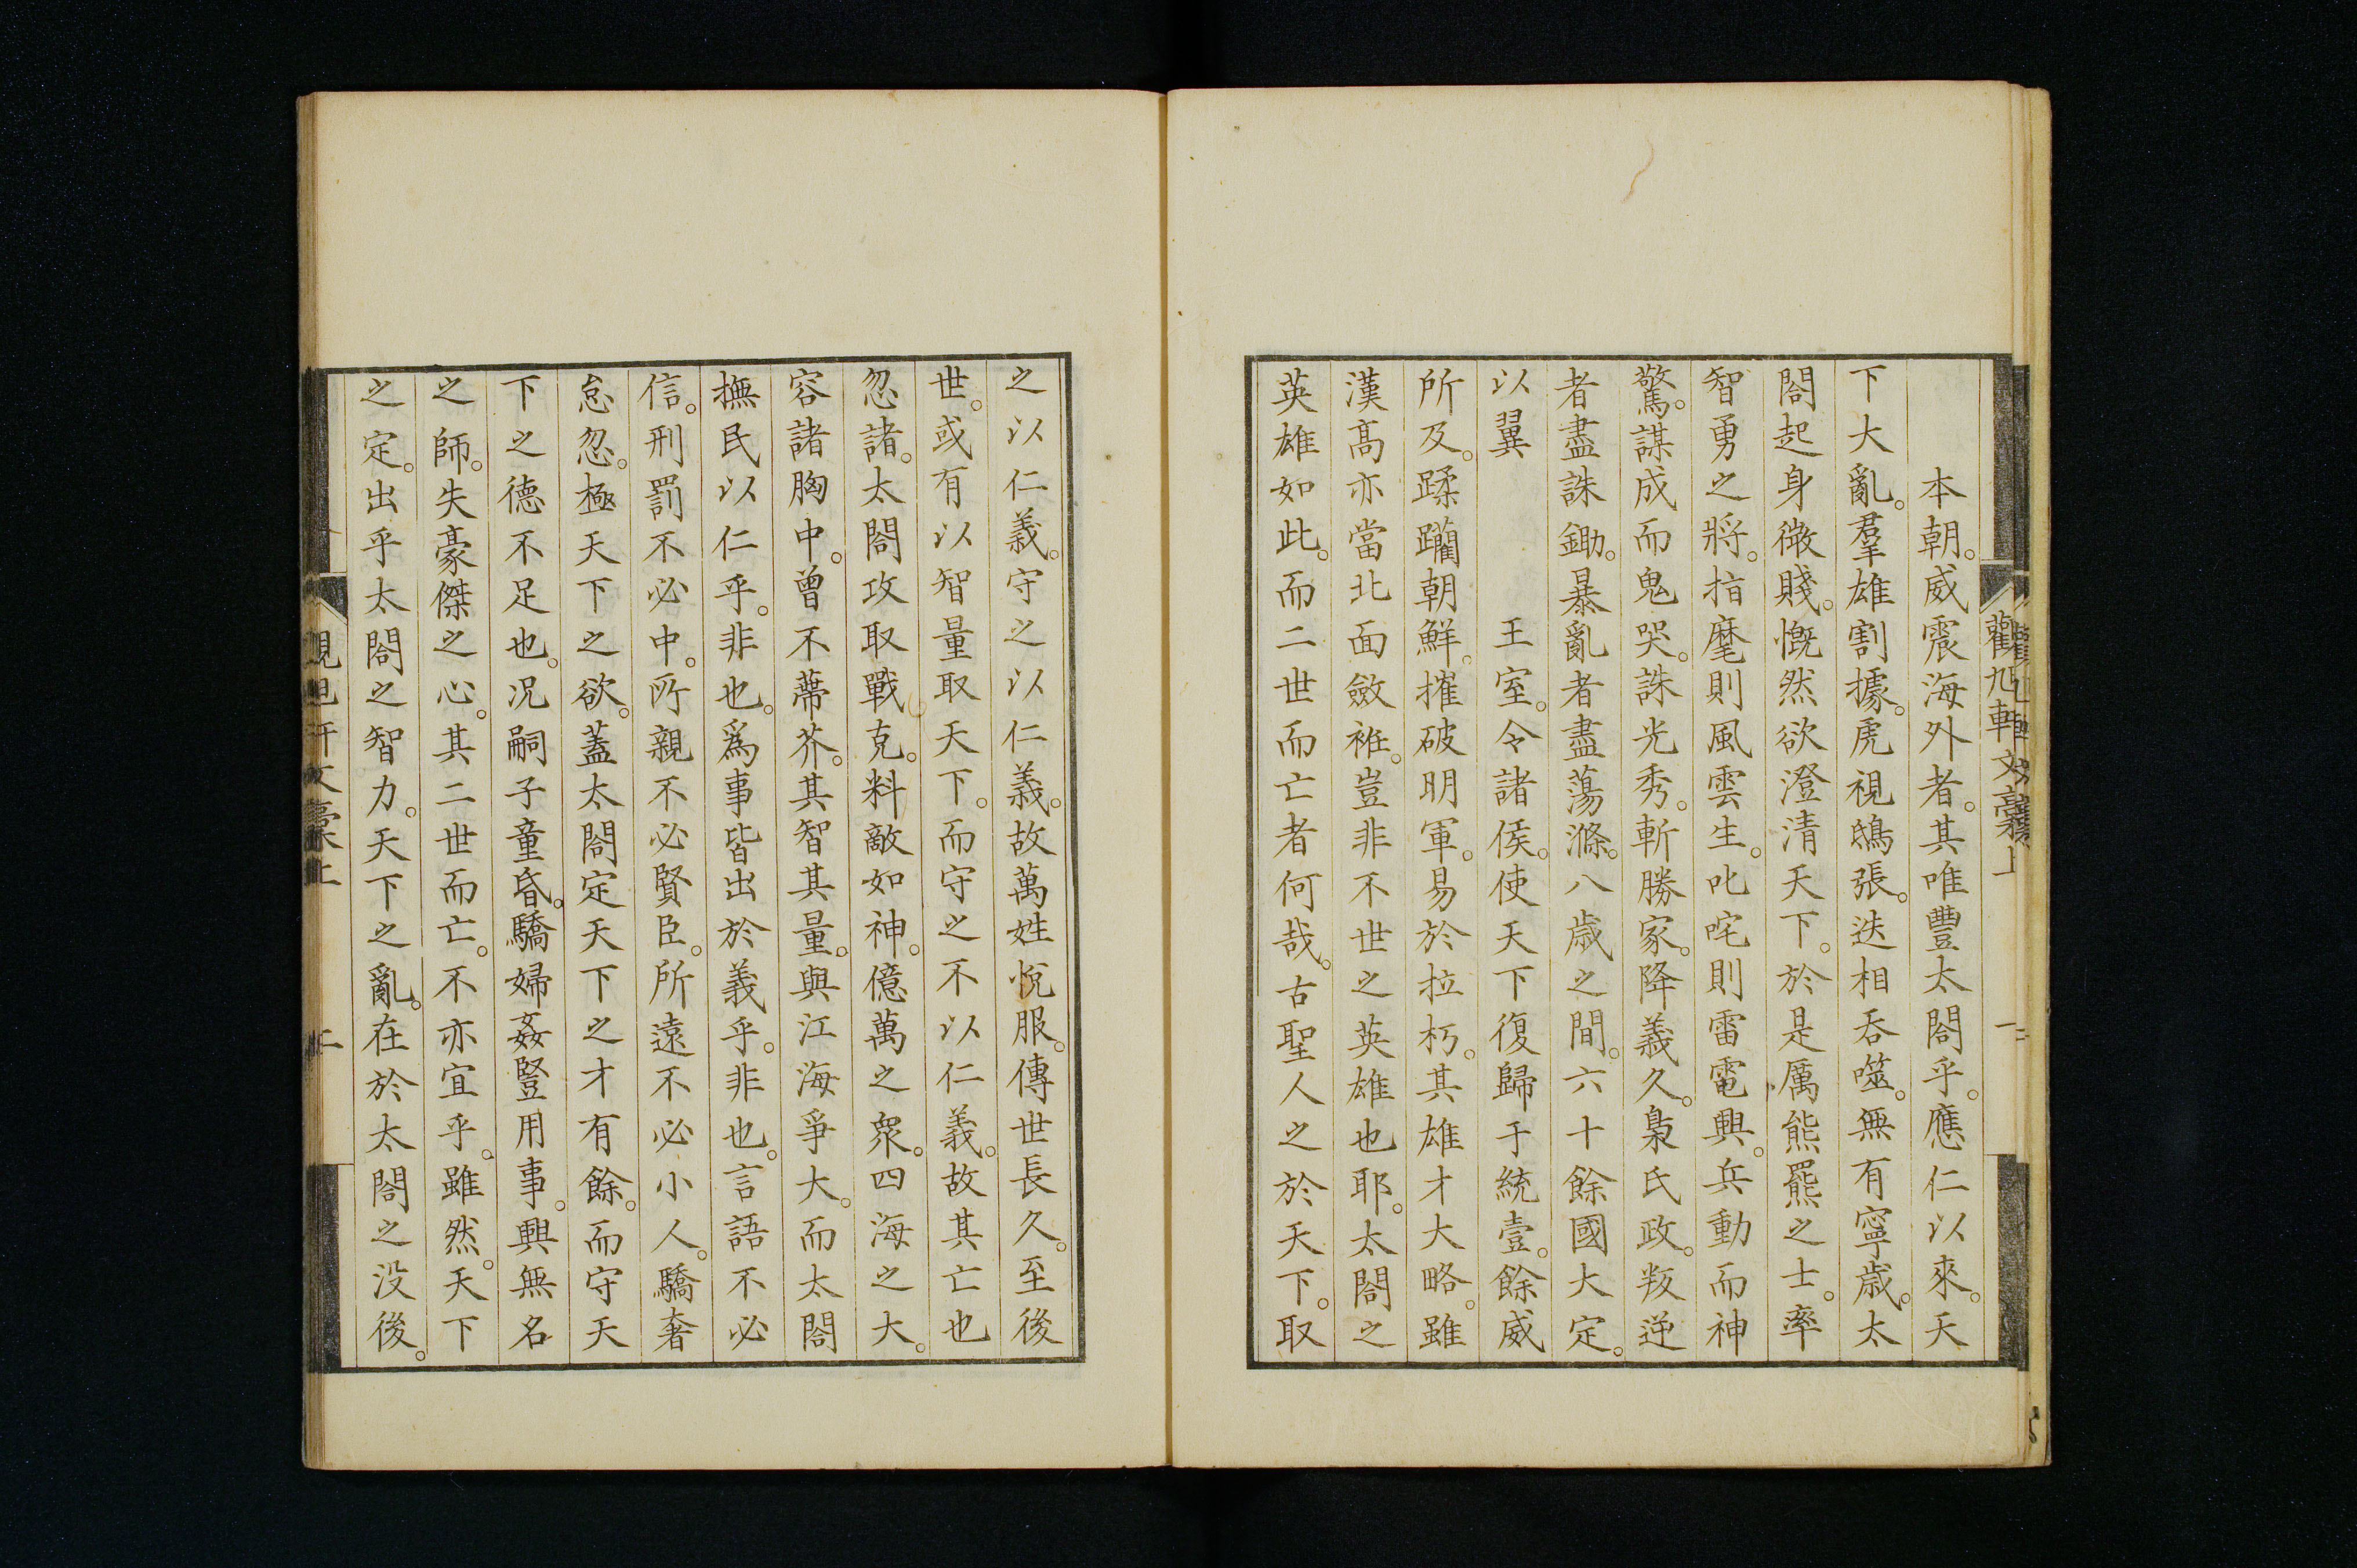 本朝。威震海外者。其唯豐太閤乎。應仁以來。天
下大亂。羣雄割據。虎視鴟張。迭相吞噬。無有寧歳。太
閤起身微賤。慨然欲澄清天下。於是厲熊羆之士。率
智勇之將。指麾則風雲生。叱咤則雷電興。兵動而神
驚。謀成而鬼哭。誅光秀。斬勝家。降義久。梟氏政。叛逆
者盡誅鋤。暴亂者盡蕩滌。八歳之間。六十餘國大定。
以翼　　王室。令諸侯。使天下復歸于統壹。餘威
所及。蹂躪朝鮮。摧破明軍。易於拉朽。其雄才大略。雖
漢高亦當北面斂袵。豈非不世之英雄也耶。太閤之
英雄如此。而二世而亡者何哉。古聖人之於天下。取
觀旭軒文藁上
之以仁義。守之以仁義。故萬姓悅服。傳世長久。至後
世。或有以智量取天下。而守之不以仁義。故其亡也
忽諸。太閤攻取戰克。料敵如神。億萬之衆。四海之大。
容諸胸中。曾不蔕芥。其智其量。與江海爭大。而太閤
撫民以仁乎。非也。爲事皆出於義乎。非也。言語不必
信。刑罰不必中。所親不必賢臣。所遠不必小人。驕奢
怠忽。極天下之欲。蓋太閤定天下之才有餘。而守天
下之德不足也。况嗣子童昏。驕婦姦豎用事。興無名
之師。失豪傑之心。其二世而亡。不亦宜乎。雖然。天下
之定。出乎太閤之智力。天下之亂。在於太閤之没後。
二